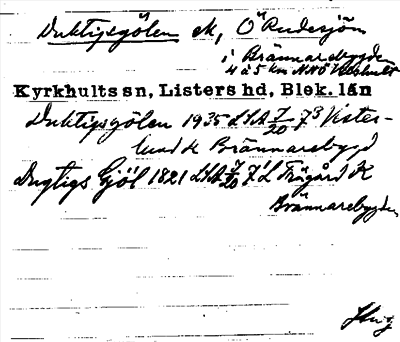 Duktigsgölen sk, Ö Rudesjön
i Brännarebygden
4 à 5 km NNÖ Vilshult
Kyrkhults sn, Listers hd, Blek. län
Duktigsgölen 1935 LSA 7/20 73 Vester-
lund k Brännarebygd
Dugtigs Gjöl 1821 LSA 7/20 71 Trägård K
Brännarebygden